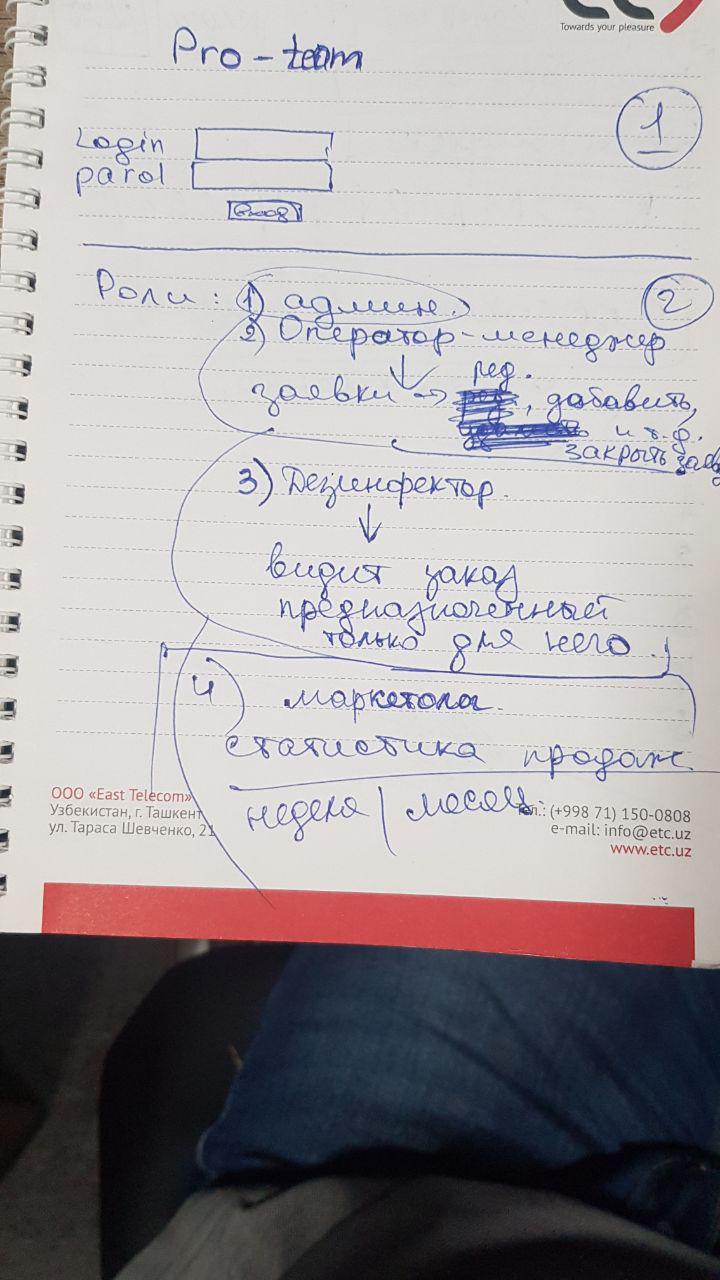 Towards your pleasure
Pro-team
1
Login
parol
вход
Роли: 1) админ.
2
2) Оператор-менеджер
ред.
заявки → , добавить,
и т.д.
закрыть заяв
3) Дезинфектор.
видит заказ
предназначенный
только для него.
4) маркетолог.
статистика продаж.
неделя | месяц.
ООО «East Telecom»
Узбекистан, г. Ташкент
ул. Тараса Шевченко, 21
тел.: (+998 71) 150-0808
e-mail: info@etc.uz
www.etc.uz